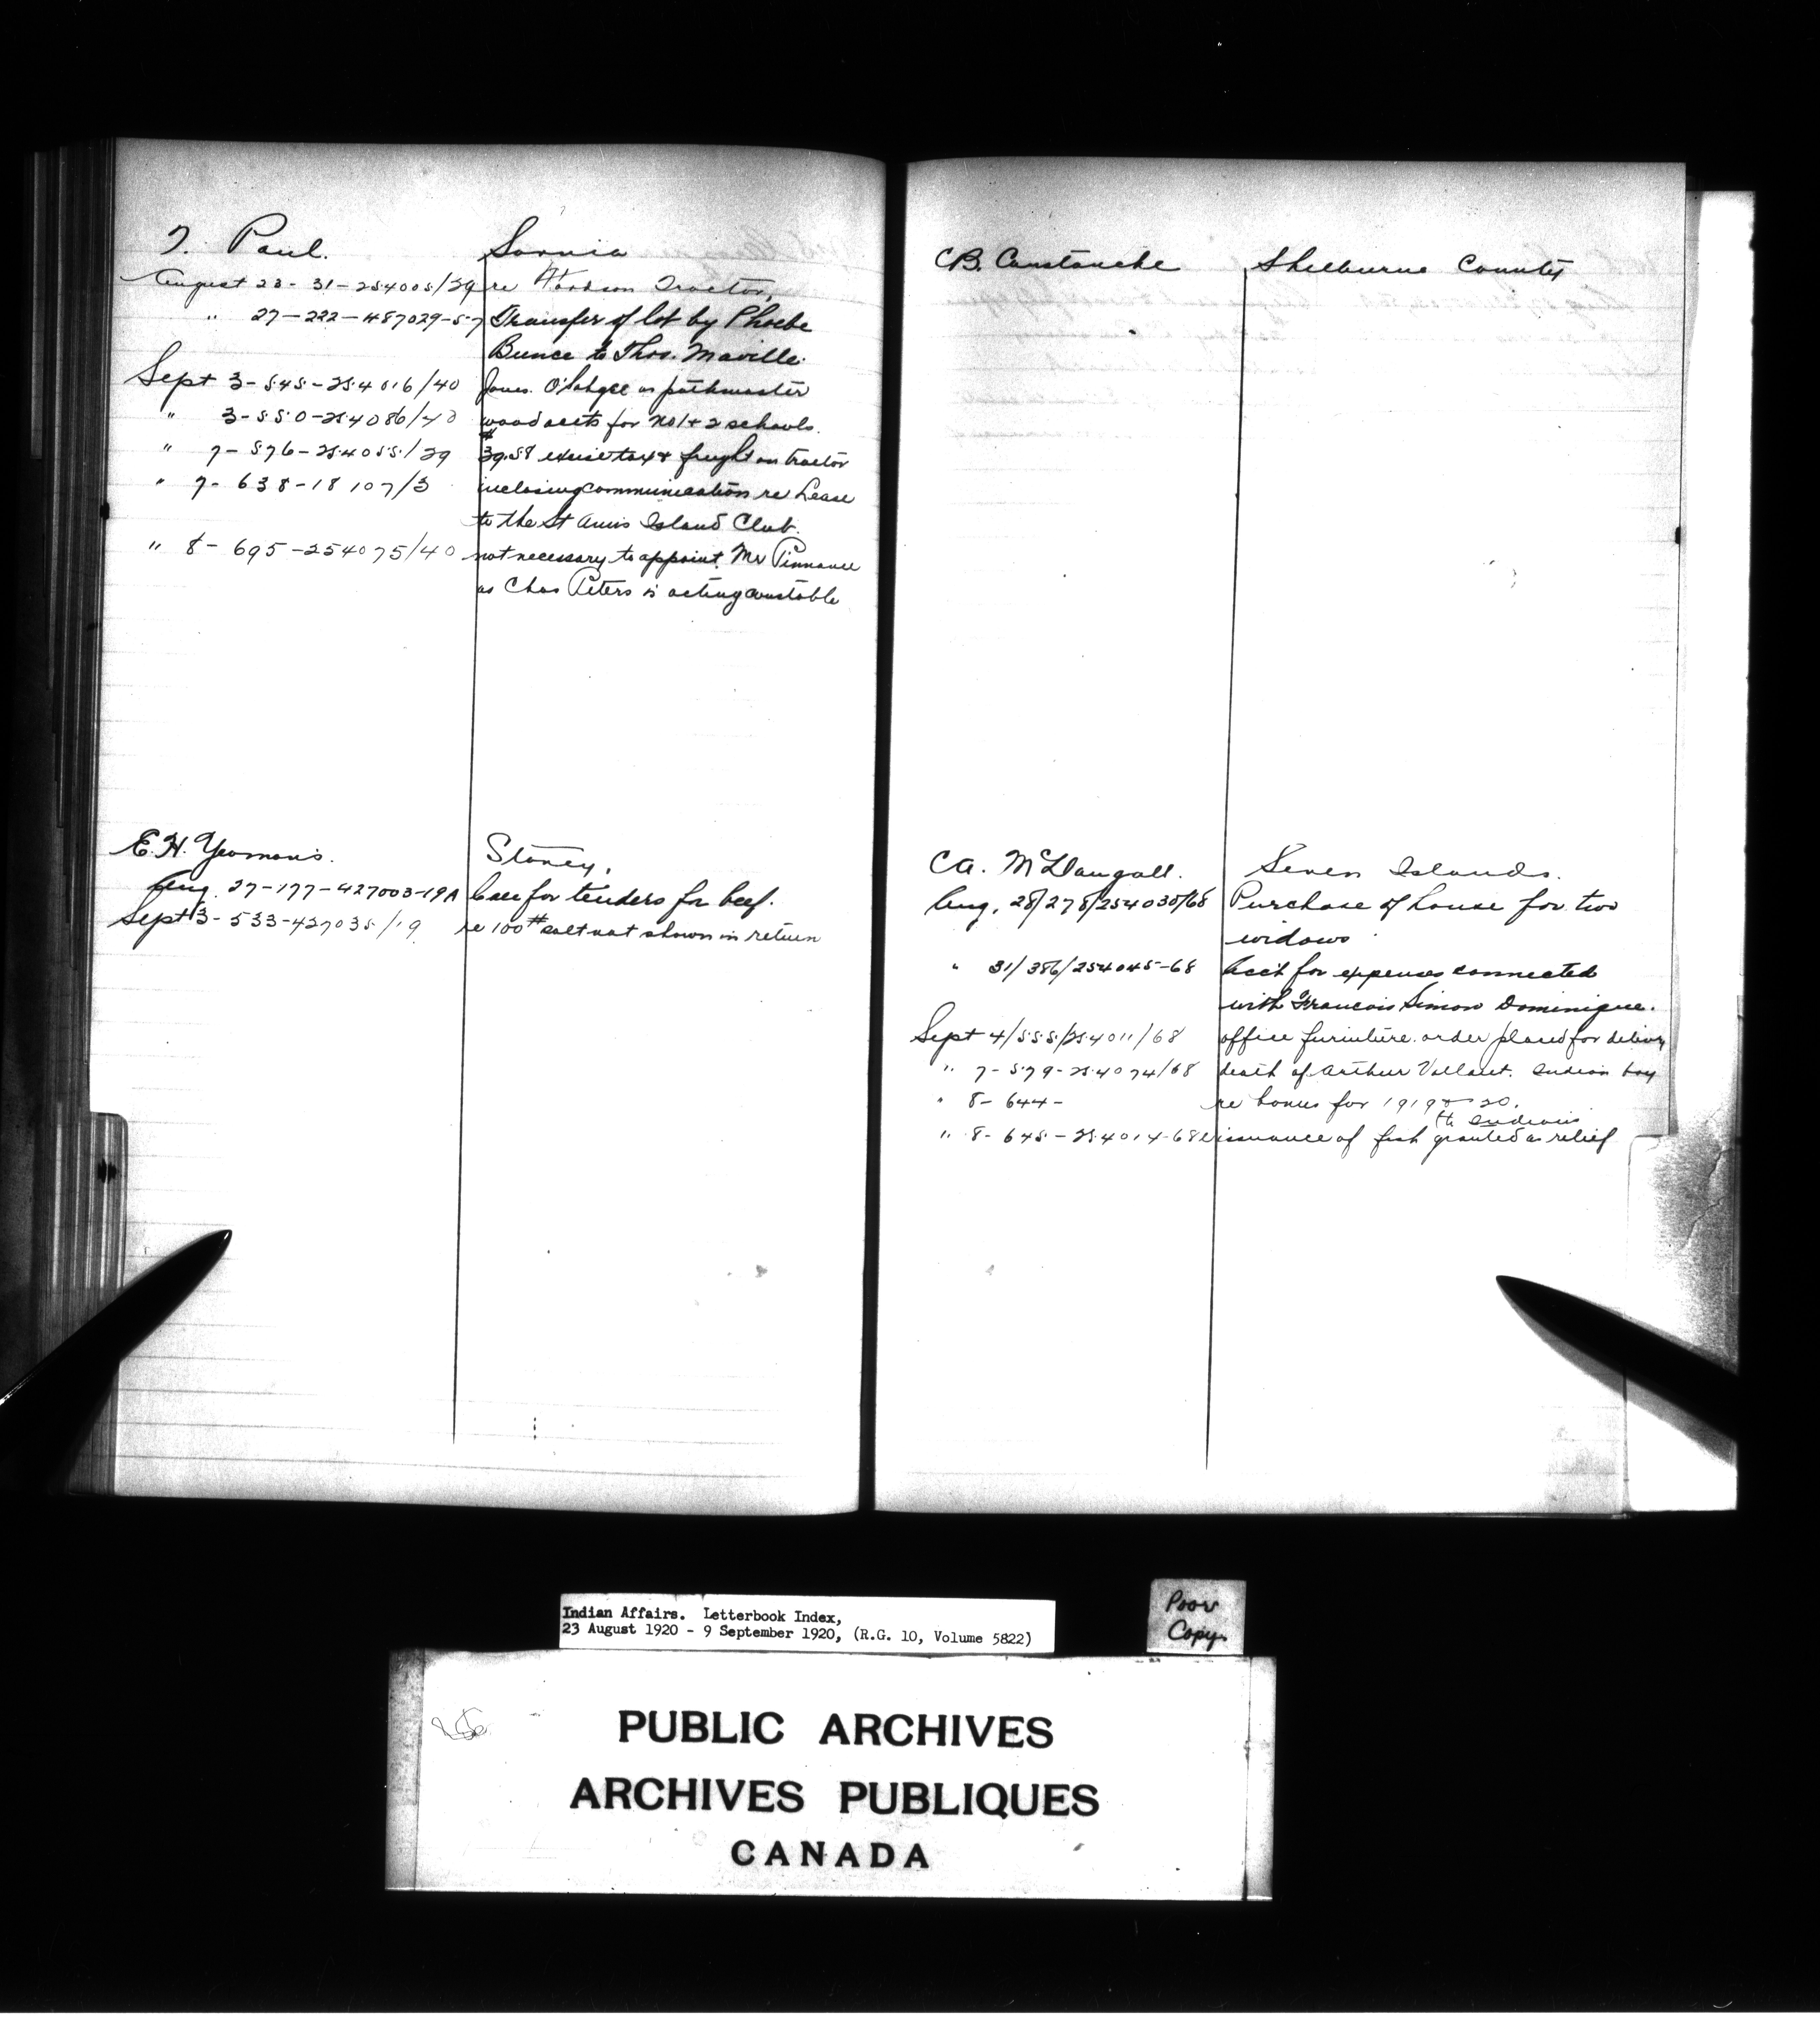 T. Paul. Sarnia
August 23 - 31 - 254005/39 re Fordson Tractor,
" 27 - 222 - 487029-57 Transfer of lot by Phoebe
Bunce to Thos. Maville.
Sept 3 - 545 - 254016/40 James as pathmaster
" 3 - 550 - 254086/40 wood accts for No 1 & 2 schools.
" 7 - 576 - 254055/39 $39.58 excise tax & freight on tractor
" 7 - 638 - 18107/3 inclosing communication re Lease
to the St Anns Island Club.
" 8 - 695 - 254075/40 not necessary to appoint Mr Pinnance
as Chas Peters is acting constable
E. H. Yeomans. Stoney.
Aug. 27 - 177 - 427003-19A Call for tenders for beef.
Sept 3 - 533 - 427035/19 re 100# salt not shown in return
Shelburne County
C.A. McDougall. Seven Islands.
Aug. 28/278/254030/68 Purchase of house for two
widows
" 31/386/254045-68 Acct for expenses connected
with Francois Simon Dominique.
Sept 4/555/254011/68 office furniture order placed for delivery
" 7 - 579 - 254074/68 death of Arthur Vollant. Indian boy
" 8 - 644 - re bonus for 1919 & 20.
to Indians
" 8 - 645 - 254014-68 re issuance of fish granted as relief
Indian Affairs. Letterbook Index,
23 August 1920 - 9 September 1920, (R.G. 10, Volume 5822)
Poor
Copy.
PUBLIC ARCHIVES
ARCHIVES PUBLIQUES
CANADA